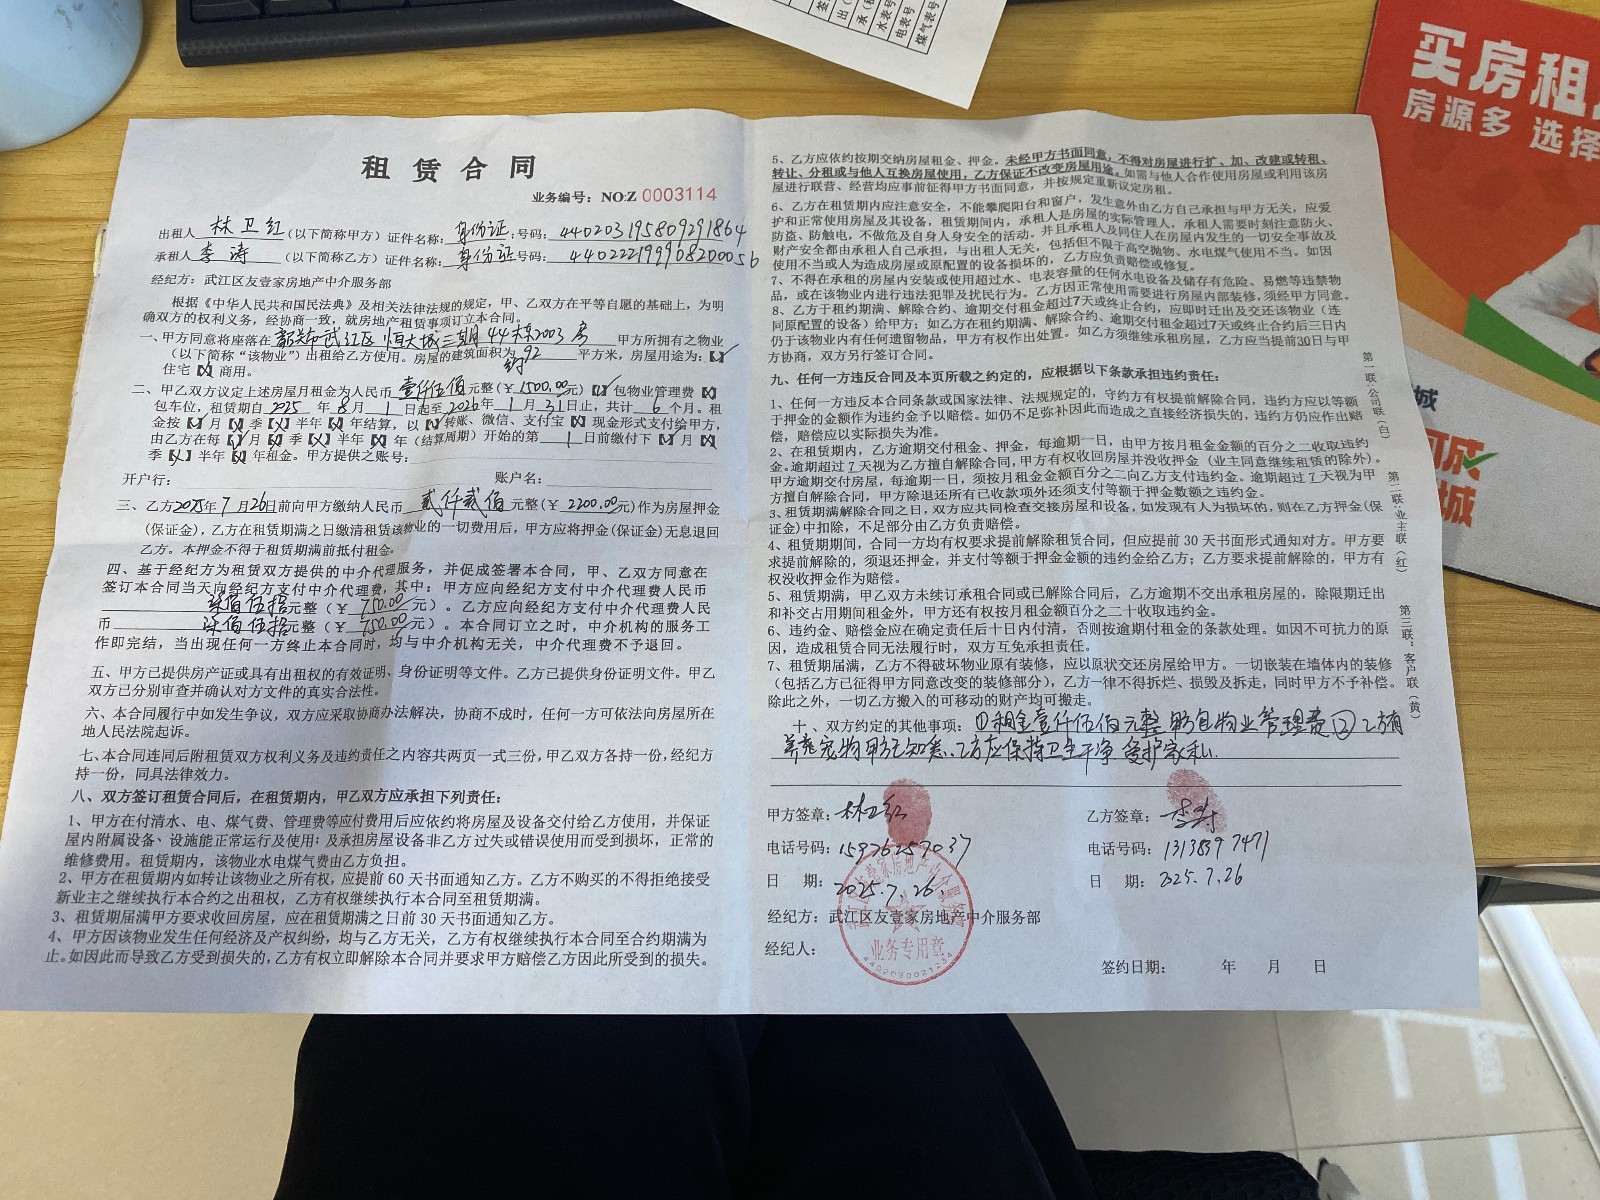 签
出（
承（
水表号
电表号
煤气表号
买房租
房源多 选择
城
城
租 赁 合 同
业务编号：NO:Z 0003114
出租人 林卫红（以下简称甲方）证件名称：身份证：号码：440203195809291864
承租人 李涛（以下简称乙方）证件名称：身份证号码：440222199908200056
经纪方：武江区友壹家房地产中介服务部
根据《中华人民共和国民法典》及相关法律法规的规定，甲、乙双方在平等自愿的基础上，为明
确双方的权利义务，经协商一致，就房地产租赁事项订立本合同。
一、甲方同意将座落在 韶关市武江区 恒大城三期 44栋2003 房 甲方所拥有之物业
（以下简称“该物业”）出租给乙方使用。房屋的建筑面积为 约92 平方米，房屋用途为：【✓】
住宅【X】商用。
二、甲乙双方议定上述房屋月租金为人民币 壹仟伍佰 元整（￥1500.00元）【✓】包物业管理费【X】
包车位，租赁期自 2025 年 8 月 1 日起至 2026 年 1 月 31 日止，共计 6 个月。租
金按【✓】月【X】季【X】半年【X】年结算，以【✓】转账、微信、支付宝【X】现金形式支付给甲方，
由乙方在每【✓】月【X】季【X】半年【X】年（结算周期）开始的第 1 日前缴付下【✓】月【X】
季【X】半年【X】年租金。甲方提供之账号：
开户行： 账户名：
三、乙方2025年 7 月 26日前向甲方缴纳人民币 贰仟贰佰 元整（￥2200.00元）作为房屋押金
（保证金），乙方在租赁期满之日缴清租赁该物业的一切费用后，甲方应将押金（保证金）无息退回
乙方。本押金不得于租赁期满前抵付租金。
四、基于经纪方为租赁双方提供的中介代理服务，并促成签署本合同，甲、乙双方同意在
签订本合同当天向经纪方支付中介代理费，其中：甲方应向经纪方支付中介代理费人民币
柒佰伍拾元整（￥ 750.00 元）。乙方应向经纪方支付中介代理费人民
币 柒佰伍拾元整（￥ 750.00 元）。本合同订立之时，中介机构的服务工
作即完结，当出现任何一方终止本合同时，均与中介机构无关，中介代理费不予退回。
五、甲方已提供房产证或具有出租权的有效证明、身份证等文件。乙方已提供身份证明文件。甲乙
双方已分别审查并确认对方文件的真实合法性。
六、本合同履行中如发生争议，双方应采取协商办法解决，协商不成时，任何一方可依法向房屋所在
地人民法院起诉。
七、本合同连同后附租赁双方权利义务及违约责任之内容共两页一式三份，甲乙双方各持一份，经纪方
持一份，同具法律效力。
八、双方签订租赁合同后，在租赁期内，甲乙双方应承担下列责任：
1、甲方在付清水、电、煤气费、管理费等应付费用后应依约将房屋及设备交付给乙方使用，并保证
屋内附属设备、设施能正常运行及使用；及承担房屋设备非乙方过失或错误使用而受到损坏，正常的
维修费用。租赁期内，该物业水电煤气费由乙方负担。
2、甲方在租赁期内如转让该物业之所有权，应提前 60 天书面通知乙方。乙方不购买的不得拒绝接受
新业主之继续执行本合约之出租权，乙方有权继续执行本合同至租赁期满。
3、租赁期届满甲方要求收回房屋，应在租赁期满之日前 30 天书面通知乙方。
4、甲方因该物业发生任何经济及产权纠纷，均与乙方无关，乙方有权继续执行本合同至合约期满为
止。如因此而导致乙方受到损失的，乙方有权立即解除本合同并要求甲方赔偿乙方因此所受到的损失。
5、乙方应依约按期交纳房屋租金、押金。未经甲方书面同意，不得对房屋进行扩、加、改建或转租、
转让、分租或与他人互换房屋使用，乙方保证不改变房屋用途。如需与他人合作使用房屋或利用该房
屋进行联营、经营均应事前征得甲方书面同意，并按规定重新议定房租。
6、乙方在租赁期内应注意安全，不能攀爬阳台和窗户，发生意外由乙方自己承担与甲方无关，应爱
护和正常使用房屋及其设备，租赁期间内，承租人是房屋的实际管理人，承租人需要时刻注意防火、
防盗、防触电，不做危及自身人身安全的活动。并且承租人及同住人在房屋内发生的一切安全事故及
财产安全都由承租人自己承担，与出租人无关，包括但不限于高空抛物、水电煤气使用不当。如因
使用不当或人为造成房屋或原配置的设备损坏的，乙方应负责赔偿或修复。
7、不得在承租的房屋内安装或使用超过水、电表容量的任何水电设备及储存有危险、易燃等违禁物
品，或在该物业内进行违法犯罪及扰民行为。乙方因正常使用需要进行房屋内部装修，须经甲方同意。
8、乙方于租约期满、解除合约、逾期交付租金超过7天或终止合约，应即时迁出及交还该物业（连
同原配置的设备）给甲方；如乙方在租约期满、解除合约、逾期交付租金超过7天或终止合约后三日内
仍于该物业内有任何遗留物品，甲方有权作出处置。如乙方须继续承租房屋，乙方应当提前30日与甲
方协商，双方另行签订合同。
九、任何一方违反合同及本页所载之约定的，应根据以下条款承担违约责任：
1、任何一方违反本合同条款或国家法律、法规规定的，守约方有权提前解除合同，违约方应以等额
于押金的金额作为违约金予以赔偿。如仍不足弥补因此而造成之直接经济损失的，违约方仍应作出赔
偿，赔偿应以实际损失为准。
2、在租赁期内，乙方逾期交付租金、押金，每逾期一日，由甲方按月租金金额的百分之二收取违约
金。逾期超过 7 天视为乙方擅自解除合同，甲方有权收回房屋并没收押金（业主同意继续租赁的除外）。
甲方逾期交付房屋，每逾期一日，须按月租金金额百分之二向乙方支付违约金。逾期超过 7 天视为甲
方擅自解除合同，甲方除退还所有已收款项外还须支付等额于押金数额之违约金。
3、租赁期满解除合同之日，双方应共同检查交接房屋和设备，如发现有人为损坏的，则在乙方押金（保
证金）中扣除，不足部分由乙方负责赔偿。
4、租赁期期间，合同一方均有权要求提前解除租赁合同，但应提前 30 天书面形式通知对方。甲方要
求提前解除的，须退还押金，并支付等额于押金金额的违约金给乙方；乙方要求提前解除的，甲方有
权没收押金作为赔偿。
5、租赁期满，甲乙双方未续订承租合同或已解除合同后，乙方逾期不交出承租房屋的，除限期迁出
和补交占用期间租金外，甲方还有权按月租金金额百分之二十收取违约金。
6、违约金、赔偿金应在确定责任后十日内付清，否则按逾期付租金的条款处理。如因不可抗力的原
因，造成租赁合同无法履行时，双方互免承担责任。
7、租赁期届满，乙方不得破坏物业原有装修，应以原状交还房屋给甲方。一切嵌装在墙体内的装修
（包括乙方已征得甲方同意改变的装修部分），乙方一律不得拆烂、损毁及拆走，同时甲方不予补偿。
除此之外，一切乙方搬入的可移动的财产均可搬走。
十、双方约定的其他事项：①租金壹仟伍佰元整 明包物业管理费②乙方有
养宠物甲方已知悉，乙方应保持卫生干净 爱护家私.
甲方签章：林卫红
乙方签章：李涛
电话号码：15976257037
电话号码：13138997471
日 期：2025.7.26
日 期：2025.7.26
经纪方：武江区友壹家房地产中介服务部
经纪人：
签约日期： 年 月 日
业务专用章
第一联：公司联（白）
第二联：业主联（红）
第三联：客户联（黄）